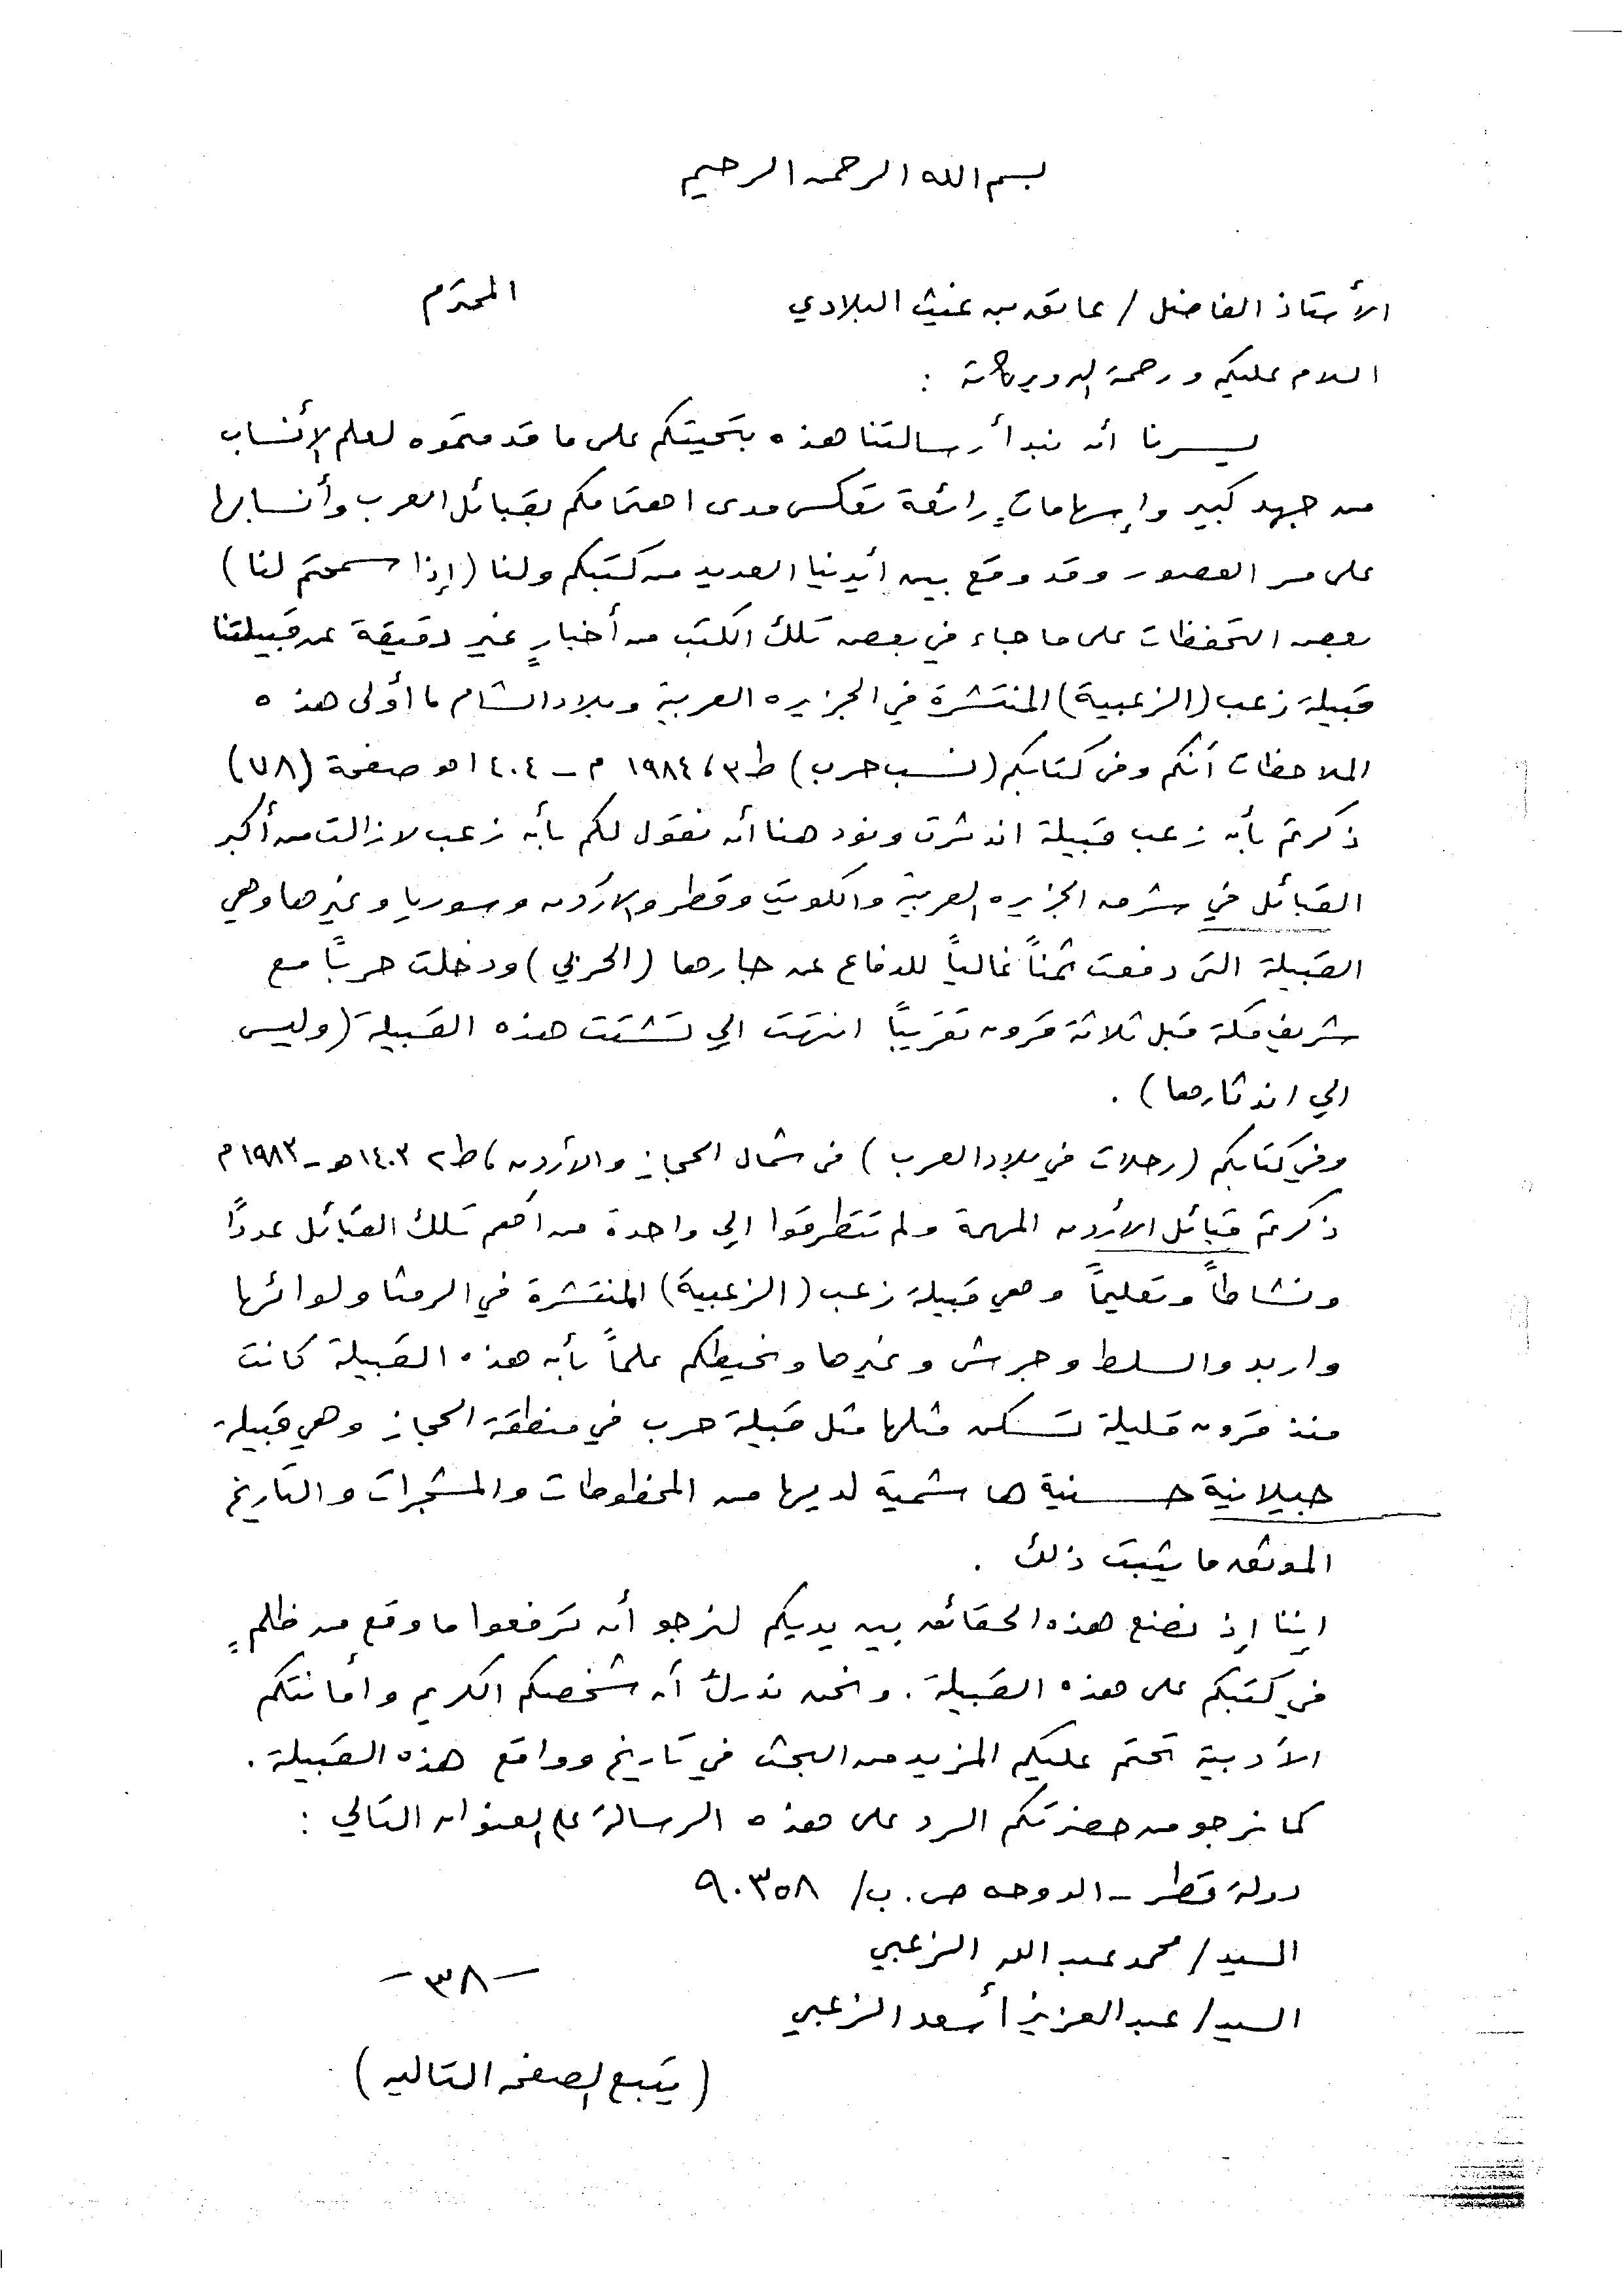 بسم الله الرحمن الرحيم
الأستاذ الفاضل / عاتق بن غيث البلادي المحترم
السلام عليكم ورحمة الله وبركاته :
يسرنا أن نبدأ رسالتنا هذه بتحيتكم على ما قدمتموه لعلم الأنساب
من جهد كبير وإسهاماتٍ رائعة تعكس مدى اهتمامكم بقبائل العرب وأنسابها
على مر العصور وقد وقع بين أيدينا العديد من كتبكم ولنا (إذا سمحتم لنا)
بعض التحفظات على ما جاء في بعض تلك الكتب من أخبارٍ غير دقيقة عن قبيلتنا
قبيلة زعب (الزعبية) المنتشرة في الجزيره العربية وبلاد الشام ما أولى هذه
الملاحظات أنكم وفي كتابكم (نسب حرب) ط٣، ١٩٨٤ م – ١٤٠٤ هـ صفحة (٧٨)
ذكرتم بأن زعب قبيلة اندثرت ونود هنا أن نقول لكم بأن زعب لا زالت من أكبر
القبائل في شرق الجزيره العربية والكويت وقطر والأردن وسوريا وغيرها وهي
القبيلة التي دفعت ثمناً غالياً للدفاع عن جارها (الحربي) ودخلت حرباً مع
شريف مكة قبل ثلاثة قرون تقريباً انتهت الي تشتت هذه القبيلة (وليس
الي اندثارها) .
وفي كتابكم (رحلات في بلاد العرب) في شمال الحجاز والأردن، ط٢ ١٤٠٣ هـ – ١٩٨٣ م
ذكرتم قبائل الأردن المهمة ولم تتطرقوا الي واحدة من أهم تلك القبائل عدداً
ونشاطاً وتعليماً وهي قبيلة زعب (الزعبية) المنتشرة في الرمثا ولوائها
واربد والسلط وجرش وغيرها ونحيطكم علماً بأن هذه القبيلة كانت
منذ قرون قليلة تسكن مثلها مثل قبيلة حرب في منطقة الحجاز وهي قبيلة
جيلانية حسنية هاشمية لديها من المخطوطات والمشجرات والتاريخ
الموثق ما يثبت ذلك .
إننا إذ نضع هذه الحقائق بين يديكم لنرجو أن ترفعوا ما وقع من ظلمٍ
في كتبكم على هذه القبيلة . ونحن ندرك أن شخصكم الكريم وأمانتكم
الأدبية تحتم عليكم المزيد من البحث في تاريخ وواقع هذه القبيلة .
كما نرجو من حضرتكم الرد على هذه الرسالة على العنوان التالي :
دولة قطر – الدوحه ص . ب/ ٩٠٣٥٨
السيد / محمد عبد الله الزعبي
السيد / عبد العزيز أسعد الزعبي
– ٣٨ –
(يتبع الصفحه التاليه)